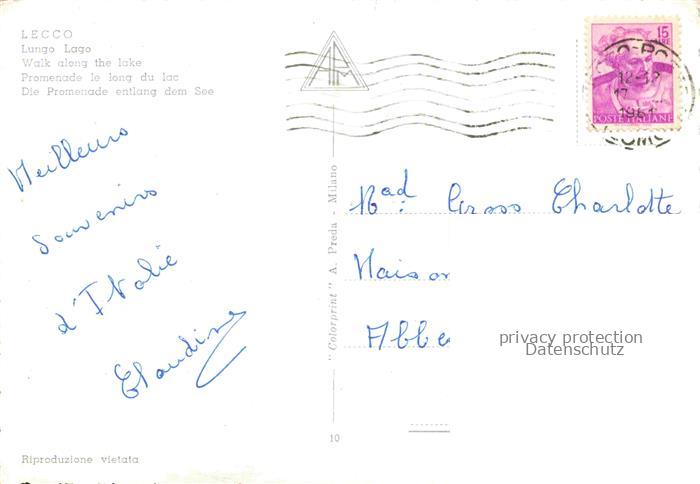 LECCO
Lungo Lago
Walk along the lake
Promenade le long du lac
Die Promenade entlang dem See
15
LIRE
POSTE ITALIANE
Meilleurs
Souvenirs
d'Italie
Claudine
Mad. Gross Charlotte
Maison
Abbe
privacy protection
Datenschutz
"Colorprint" A. Preda - Milano
10
Riproduzione vietata